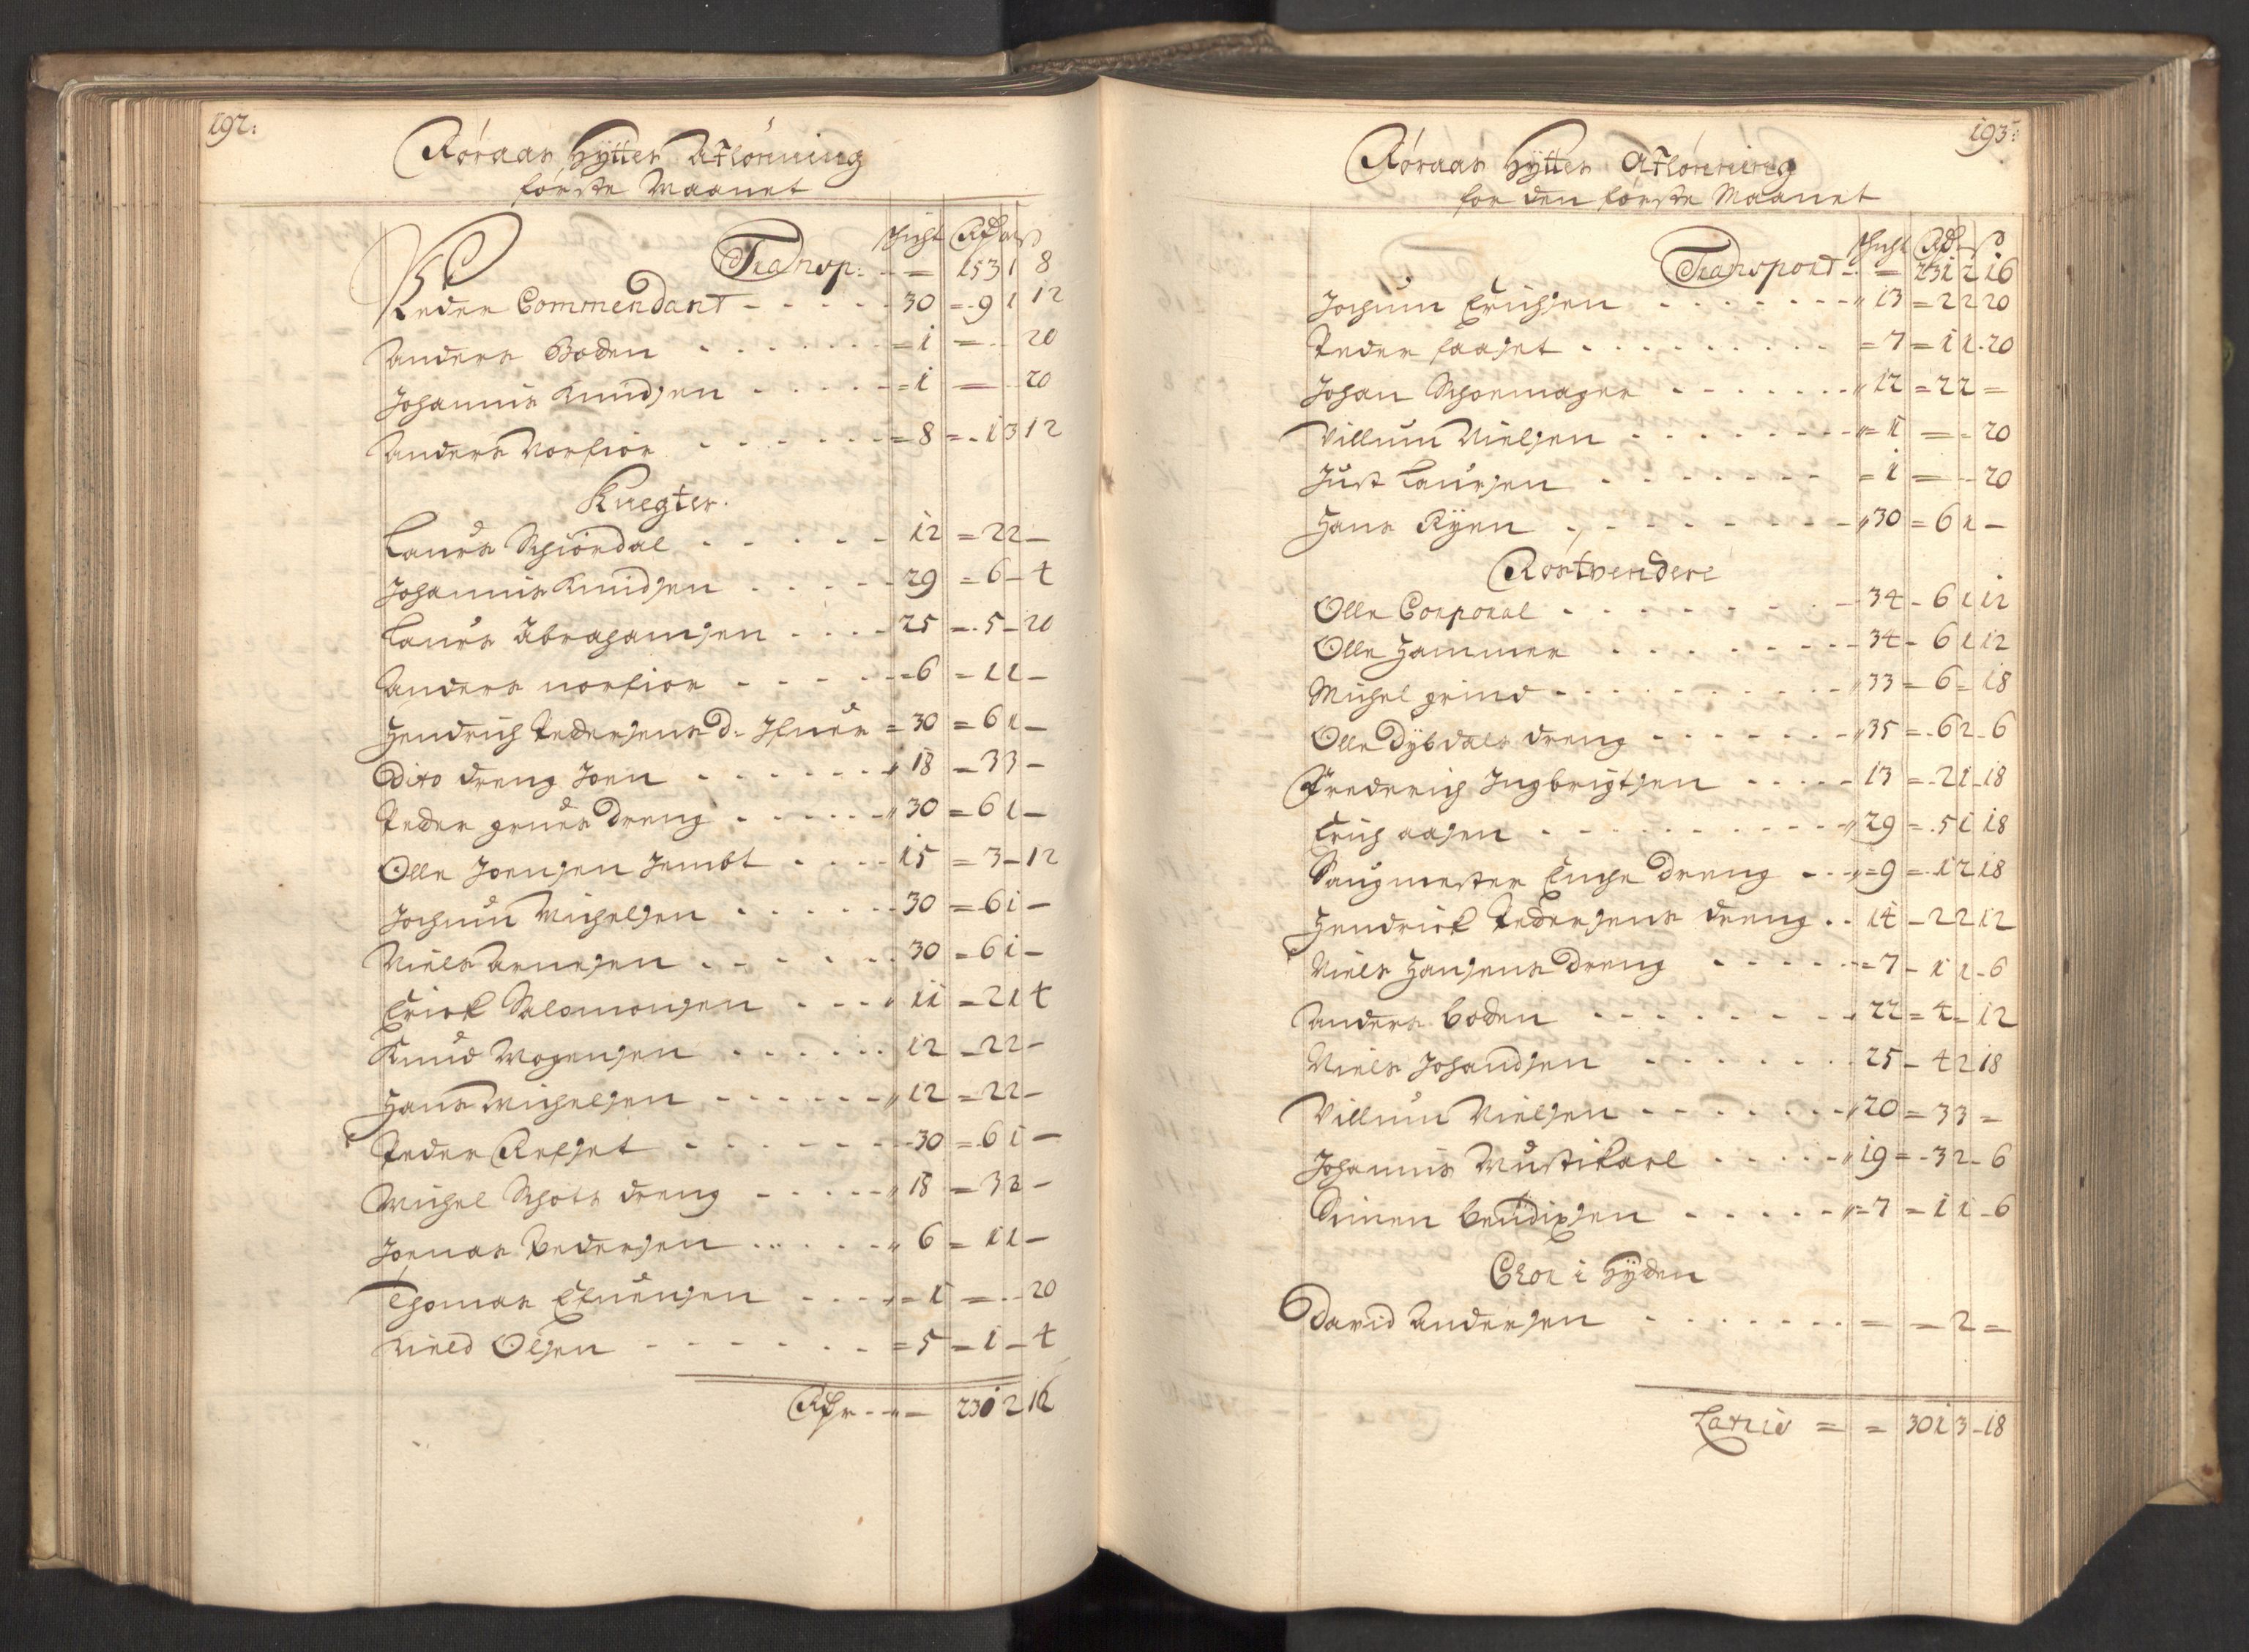 192:
Røraas Hytter Afløning
første Maanet
Schicht Rdr ort ß
Transp: - - = 153 1 8
Peder Commendant - - - - - 30 = 9 1 12
Anders Boden - - - - - - = 1 = - 20
Johannis Knudsen - - - - - = 1 = - 20
Anders Norfior - - - - - - = 8 = 1 3 12
Knegter.
Laurs Schiørdal - - - - - 12 = 2 2 -
Johannis Knudsen - - - - - 29 = 6 - 4
Laurs Abrahamsen - - - - 25 = 5 - 20
Anders norfior - - - - - = 6 = 1 1 -
Hendrich Pedersens D: Ifuer = 30 = 6 1 -
Dito dreng Joen - - - - - - " 18 = 3 3 -
Peder grues Dreng - - - - - " 30 = 6 1 -
Olle Joensen Jembt - - - - 15 = 3 - 12
Jochum Michelsen - - - - - - 30 = 6 1 -
Niels Arnesen - - - - - - 30 = 6 1 -
Erick Salomonsen - - - " 11 = 2 1 4
Knud Mogensen - - - - - - 12 = 2 2 -
Hans Michelsen - - - - - - " 12 = 2 2 -
Peder Refset - - - - - - - 30 = 6 1 -
Michel Schots dreng - - - - - " 18 = 3 3 -
Joenas Pedersen - - - - - " 6 = 1 1 -
Thomas Efuensen - - - - = 1 = - 20
Nield Olsen - - - - - - = 5 = 1 - 4
- - " - 230 2 16
193:
Røraas Hytter Afløning
for den første Maanet
Schicht Rdr ß
Transport - - = 231 2 16
Jochum Erichsen - - - - - - - " 13 = 2 2 20
Peder faaset - - - - - - - - - = 7 = 1 1 - 20
Johan Schoemager - - - - - - - " 12 = 2 2 =
Villum Nielsen - - - - - - - - "= 1 = - 20
Just Laursen - - - - - - - = 1 = - 20
Hans Ryen - - - - - - - - - " 30 = 6 1 -
Røstvendere
Olle Corporal - - - - - - - - 34 - 6 1 12
Olle Hammer - - - - - - - - 34 - 6 1 12
Michel grind - - - - - - - - - " 33 = 6 = 18
Olle Dybdals dreng - - - - - - - " 35 = 6 2 - 6
Frederich Ingbrigtsen - - - - - 13 = 2 1 - 18
Erich aasen - - - - - - - - - " 29 = 5 1 18
Saugmester Enche Dreng - - "= 9 = 1 2 18
Hendrick Pedersens dreng - - 14 - 2 2 12
Niels Hansens Dreng - - - - - = 7 - 1 1 - 6
Anders boden - - - - - - - - 22 = 4 = 12
Niels Johandsen - - - - - - - 25 - 4 2 18
Villum Nielsen - - - - - - - " 20 = 3 3 =
Johannis Mustikarl - - - - - " 19 = 3 2 - 6
Simen bendixsen - - - - - "= 7 = 1 1 - 6
i Hyden
David Andersen - - - - - - - = = 2 =
Lateris = = 301 3 - 18